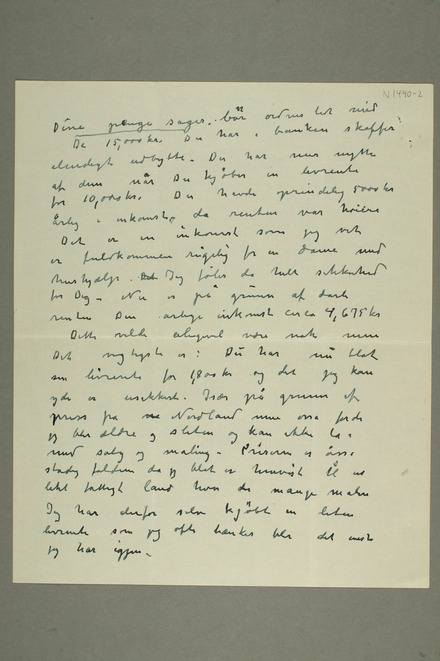 N 1490-2
Dine penge sager bør ordnes lit mid
De 15,000 kr. Du har i banken skaffer
elendigt udbytte. Du har mer nytte
af dem når Du kjøber en livrente
for 10,000 kr. Du havde oprindelig 5000 kr
årlig i inkomst, da renten var høiere
Det er en inkomst som jeg vet
er fuldkommen rigelig for en dame med
hushjælp. Jeg føler da helt sikkerhed
for Dig. Nu er på grunn af
renten Din årlige inkomst circa 4,675 kr
Dette vilde alligevel være nok men
Det vigtigste er: Du har nu blot
en livrente for 1,800 kr og det jeg kan
yde er usikkert. Især på grunn af
fra Nordland men også fordi
jeg blir ældre og sliten og kan ikke
med salg og maling. Priserne er også
stadig faldne da jeg blot er henvist til et
litet fattigt land hvor de mange malere
Jeg har derfor selv kjøbt en liten
livrente som jeg ofte tænker blir det eneste
jeg har igjen.